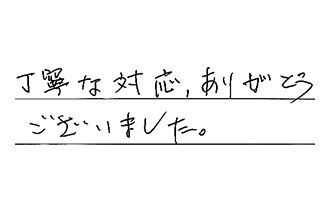 丁寧な対応,ありがとう
ございました。